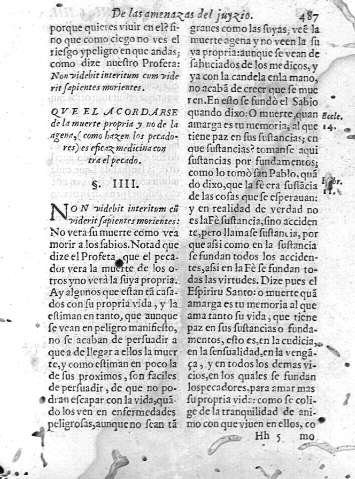 De las amenazas del juyzio. 487
porque quieres viuir en el? si
no que como ciego no ves el
riesgo y peligro en que andas,
como dize nuestro Profera:
Non videbit interitum cum vide
rit sapientes morientes.
QVE EL ACORDARSE
de la muerte propria y no de la
agena, (como hazen los pecado-
res) es eficaz medicina con
tra el pecado.
§. IIII.
NON videbit interitum cũ
viderit sapientes morientes:
No vera su muerte como vea
morir a los sabios. Notad que
dize el Profeta, que el peca-
dor vera la muerte de los o-
tros y no verà la suya propria.
Ay algunos que estan tã casa-
dos con su propria vida, y la
estiman en tanto, que aunque
se vean en peligro manifiesto,
no se acaban de persuadir a
que a de llegar a ellos la muer
te, y como estiman en poco la
de sus proximos, son faciles
de persuadir, de que no po-
dran escapar con la vida, quã-
do los ven en enfermedades
peligrosas, aunque no sean tã
granes como las suyas, veẽ la
muerte agena y no veen la su
ya propria: aunque se vean de
sahuciados de los medicos, y
ya con la candela en la mano,
no acabã de creer que se mue
ren. En esto se fundò el Sabio
quando dixo: O muerte, quan
amarga es tu memoria, al que
tiene paz en sus sustancias; en
que sustancias? tomanse aqui
sustancias por fundamentos;
como lo tomò san Pablo, quã
do dixo, que la fè era sustãcia
de las cosas que se esperauan:
y en realidad de verdad no
es la Fè sustancia, sino acciden
te, pero llamase sustancia, por
que asi como en la sustancia
se fundan todos los acciden-
tes, asi en la Fè se fundan to-
das las virtudes. Dize pues el
Espiritu Santo: o muerte quã
amarga es tu memoria al que
ama tanto su vida, que tiene
paz en sus sustancias o funda-
mentos, esto es, en la cudicia,
en la sensualidad, en la vengã-
ça, y en todos los demas vi-
cios, en los quales se fundan
los pecadores, para amar mas
su propria vida: como se coli-
ge de la tranquilidad de ani-
mo con que viuen en ellos, co
Eccle.
14.
Hh 5 mo